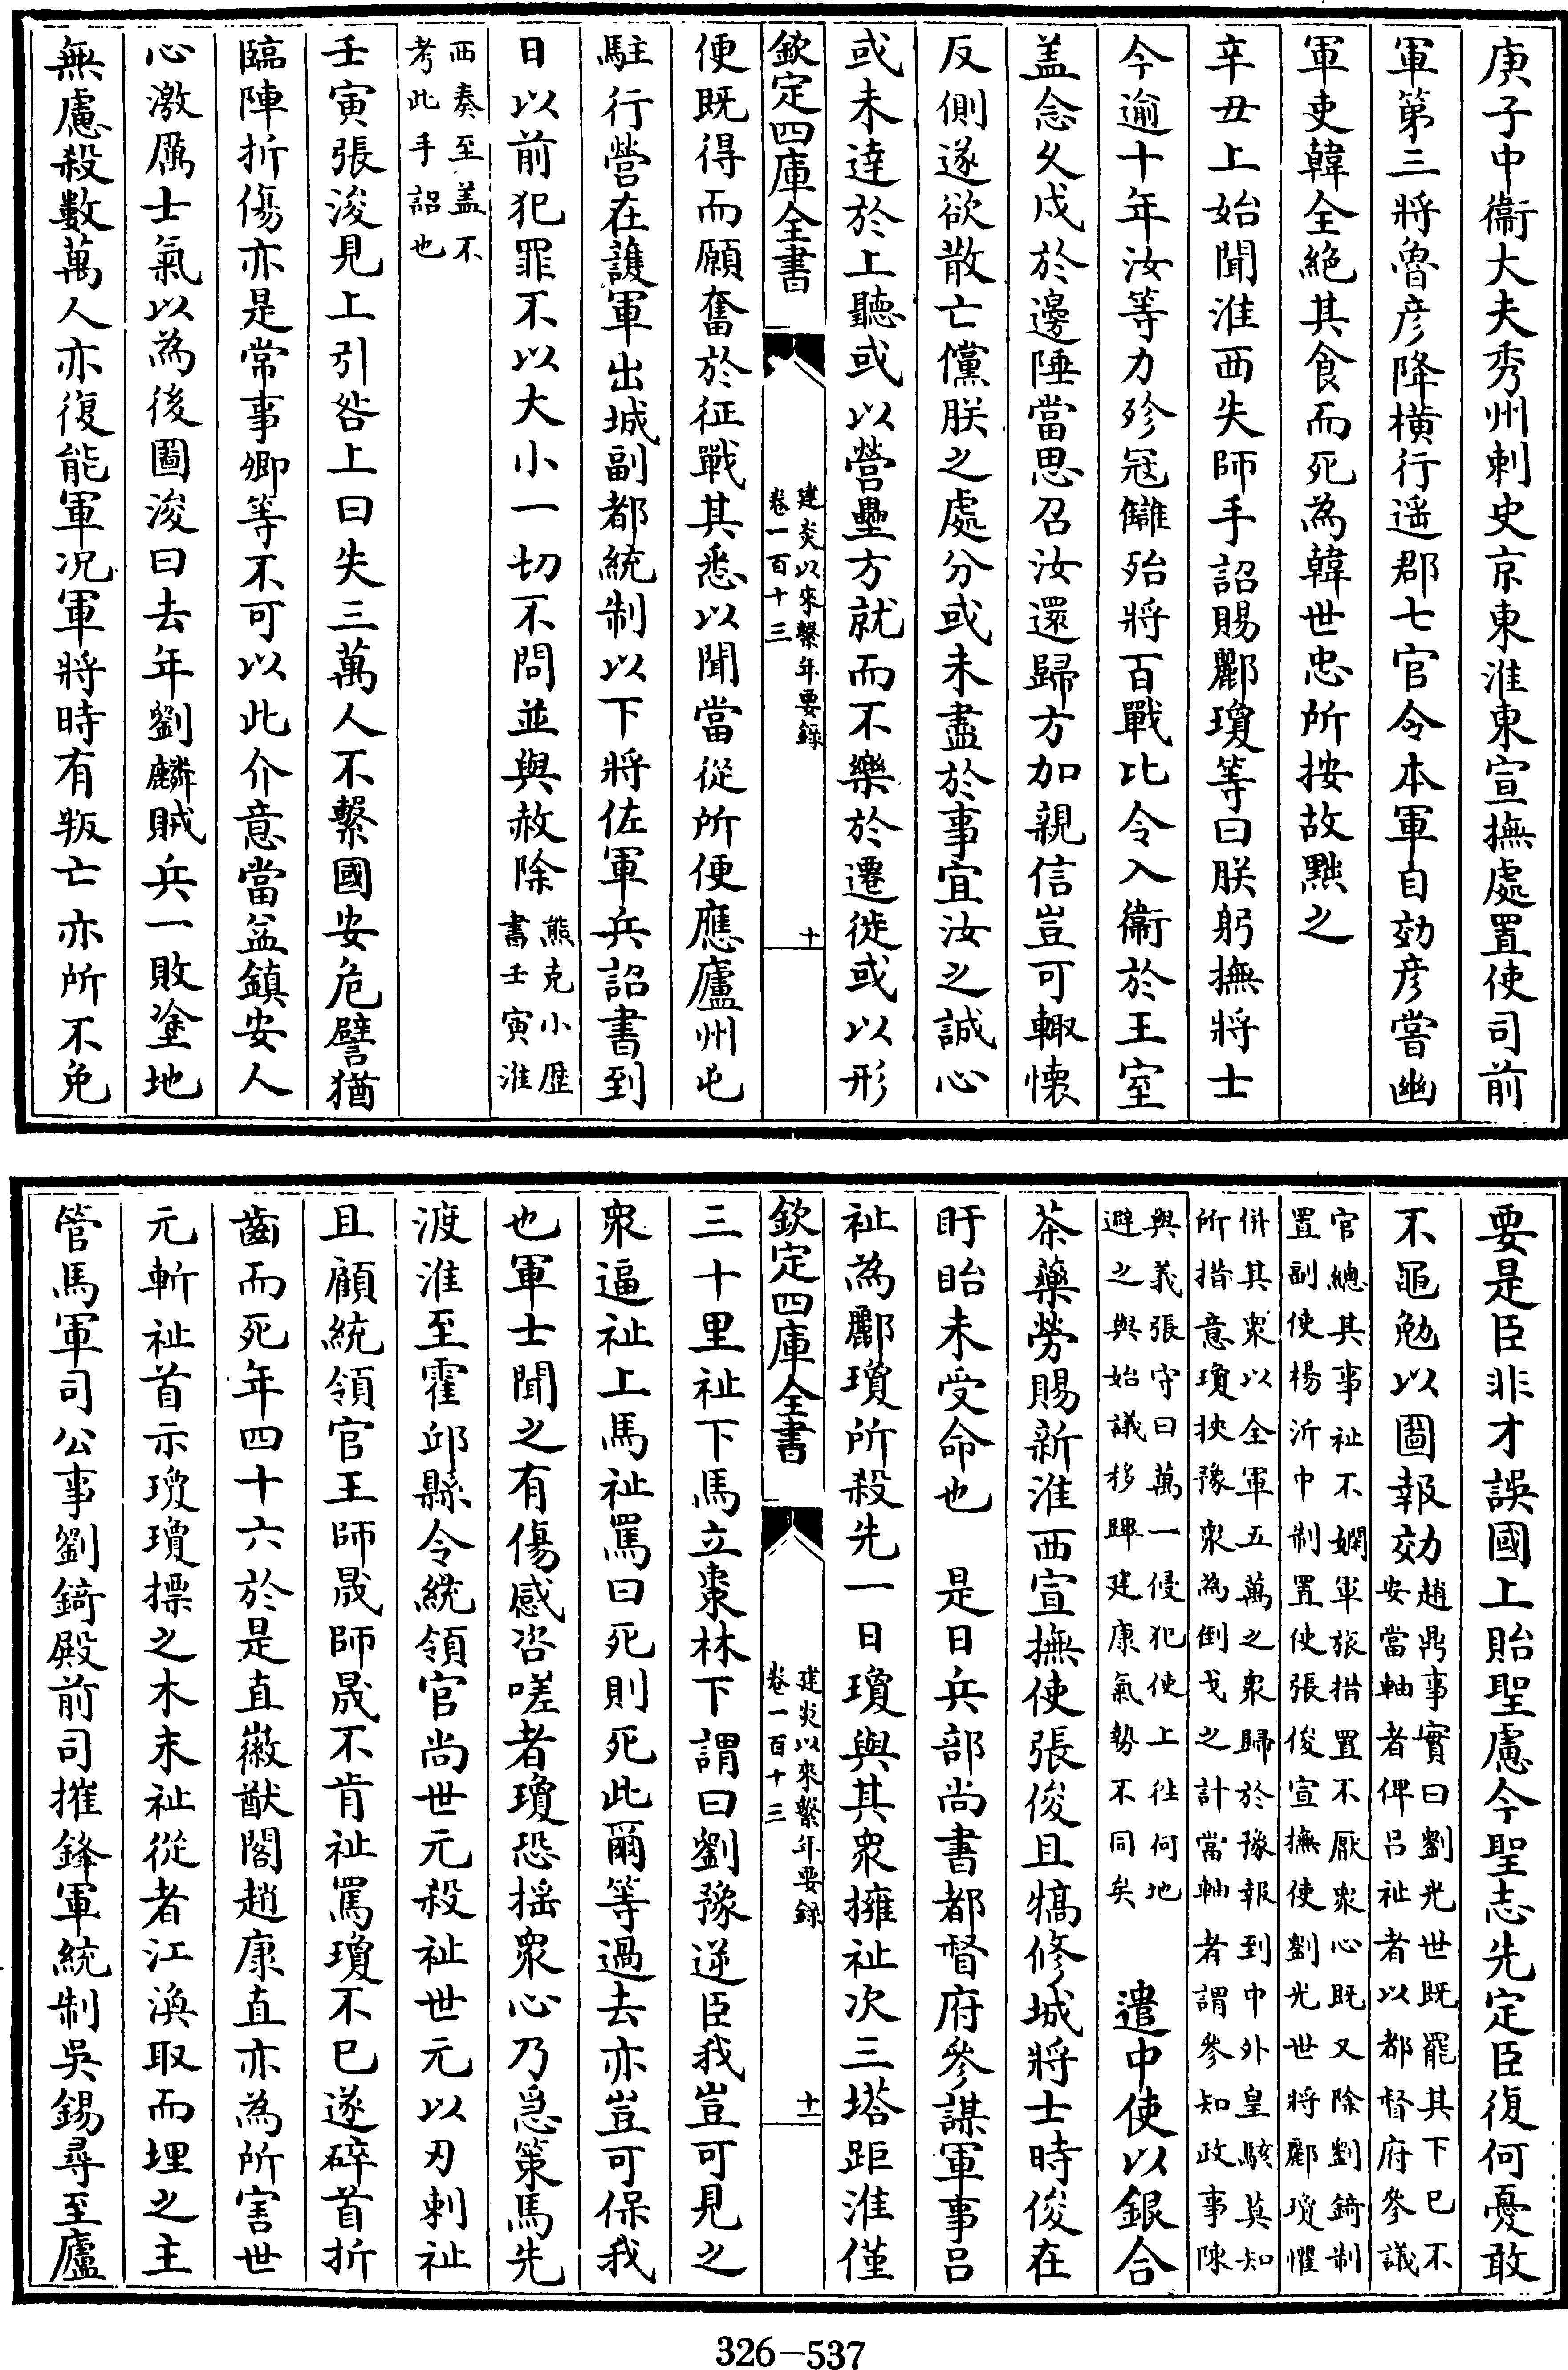 庚子中衞大夫秀州刺史京東淮東宣撫處置使司前
軍第三將魯彦降横行遥郡七官令本軍自効彦嘗幽
軍吏韓全絶其食而死為韓世忠所按故黜之
辛丑上始聞淮西失師手詔賜酈瓊等曰朕躬撫將士
今逾十年汝等力殄冦讎殆將百戰比令入衞於王室
盖念久戍於邊陲當思召汝還歸方加親信豈可輙懐
反側遂欲散亡儻朕之處分或未盡於事宜汝之誠心
或未達於上聽或以營壘方就而不樂於遷徙或以形
欽定四庫全書
建炎以來繫年要錄
卷一百十三
十
便既得而願奮於征戰其悉以聞當從所便應廬州屯
駐行營在護軍出城副都統制以下將佐軍兵詔書到
日以前犯罪不以大小一切不問並與赦除熊克小歴
書壬寅淮
西奏至盖不
考此手詔也
壬寅張浚見上引咎上曰失三萬人不繫國安危譬猶
臨陣折傷亦是常事卿等不可以此介意當益鎮安人
心激厲士氣以為後圖浚曰去年劉麟賊兵一敗塗地
無慮殺數萬人亦復能軍况軍將時有叛亡亦所不免
要是臣非才誤國上貽聖慮今聖志先定臣復何憂敢
不黽勉以圖報効趙鼎事實曰劉光世既罷其下已不
安當軸者俾吕祉者以都督府參議
官總其事祉不嫻軍旅措置不厭衆心既又除劉錡制
置副使楊沂中制置使張俊宣撫使劉光世將酈瓊懼
併其衆以全軍五萬之衆歸於豫報到中外皇駭莫知
所措意瓊挾豫衆為倒戈之計當軸者謂參知政事陳
與義張守曰萬一侵犯使上徃何地
避之與始議移蹕建康氣勢不同矣
遣中使以銀合
茶藥勞賜新淮西宣撫使張俊且犒修城將士時俊在
盱眙未受命也 是日兵部尚書都督府參謀軍事吕
祉為酈瓊所殺先一日瓊與其衆擁祉次三塔距淮僅
欽定四庫全書
建炎以來繫年要錄
卷一百十三
十一
三十里祉下馬立棗林下謂曰劉豫逆臣我豈可見之
衆逼祉上馬祉罵曰死則死此爾等過去亦豈可保我
也軍士聞之有傷感咨嗟者瓊恐揺衆心乃急策馬先
渡淮至霍邱縣令統領官尚世元殺祉世元以刃刺祉
且顧統領官王師晟師晟不肯祉罵瓊不已遂碎首折
齒而死年四十六於是直徽猷閣趙康直亦為所害世
元斬祉首示瓊瓊摽之木末祉從者江渙取而埋之主
管馬軍司公事劉錡殿前司摧鋒軍統制吳錫尋至廬
326-537